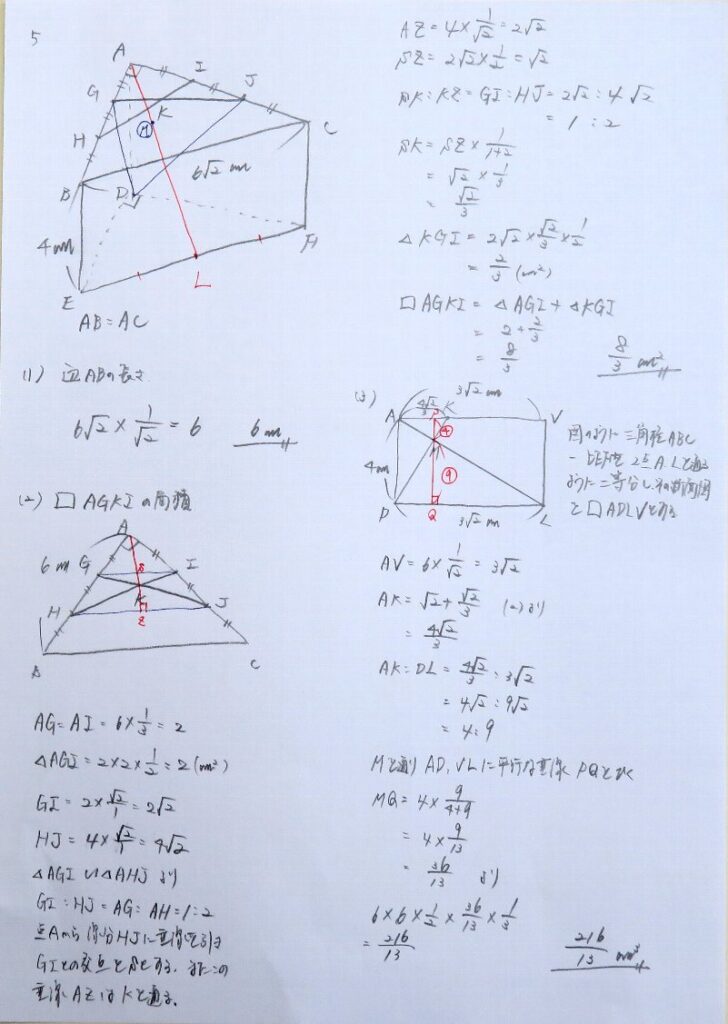 5
A
I
G
J
K
H
M
C
B
6√2 cm
D
4cm
F
E
L
AB=AC
(1) 辺ABの長さ
6√2 × 1/√2 = 6
6 cm
(2) □AGKIの面積
A
6 cm
G
S
I
H
K
J
Z
B
C
AG=AI = 6 × 1/3 = 2
△AGI = 2×2×1/2 = 2 (cm²)
GI = 2 × √2/1 = 2√2
HJ = 4 × √2/1 = 4√2
△AGI ∽ △AHJ より
GI : HJ = AG : AH = 1 : 2
点Aから線分HJに垂線を引き
GIとの交点をSとする. またこの
垂線AZはKを通る.
AZ = 4 × 1/√2 = 2√2
SZ = 2√2 × 1/2 = √2
SK : KZ = GI : HJ = 2√2 : 4√2
= 1 : 2
SK = SZ × 1/1+2
= √2 × 1/3
= √2/3
△KGI = 2√2 × √2/3 × 1/2
= 2/3 (cm²)
□AGKI = △AGI + △KGI
= 2 + 2/3
= 8/3
8/3 cm²
(3)
3√2 cm
4√2/3
A
P
K
V
④
M
4cm
⑨
D
Q
3√2 cm
L
図のように三角柱ABC
-DEFを2点A Lを通る
ように二等分し、その断面図
を□ADLVとする
AV = 6 × 1/√2 = 3√2
AK = √2 + √2/3 (2)より
= 4√2/3
AK : DL = 4√2/3 : 3√2
= 4√2 : 9√2
= 4 : 9
Mを通りAD, VLに平行な垂線PQをひく
MQ = 4 × 9/4+9
= 4 × 9/13
= 36/13 より
6 × 6 × 1/2 × 36/13 × 1/3
= 216/13
216/13 cm³